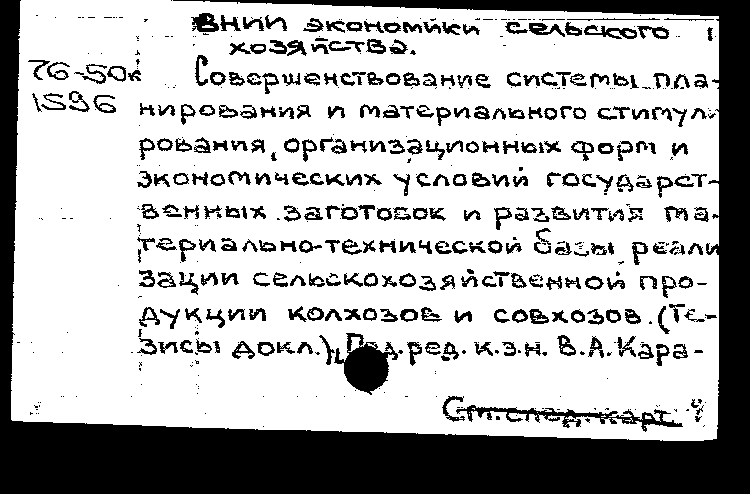 ВНИИ экономики сельского 1
хозяйства.
76-50к Совершенствование системы пла-
1596 нирования и материального стимули-
рования, организационных форм и
экономических условий государст-
венных заготовок и развития ма-
териально-технической базы реали
зации сельскохозяйственной про-
дукции колхозов и совхозов. (Те-
зисы докл.). Под. ред. к.э.н. В.А. Кара-
См. след. карт.